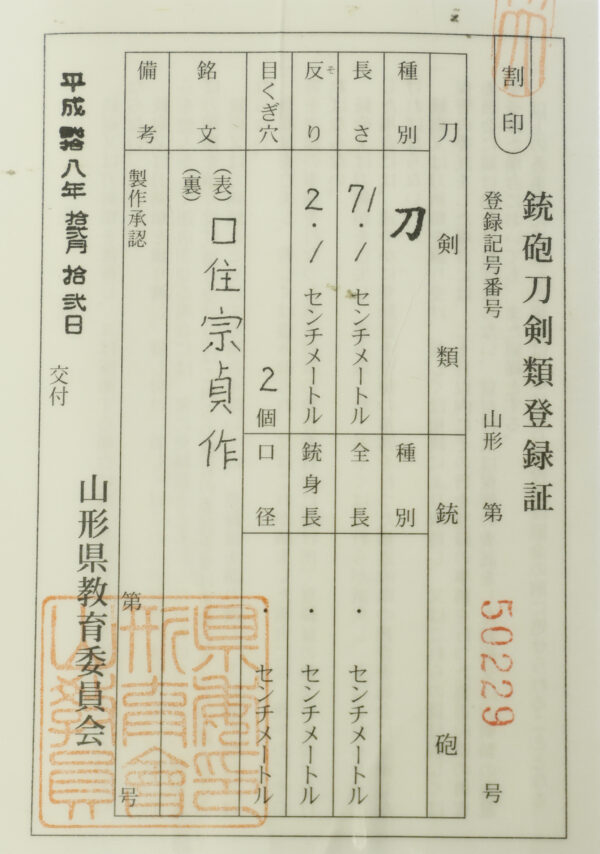 割印
銃砲刀剣類登録証
登録記号番号 山形 第 50229 号
刀剣類 銃砲
種別 刀 種別
長さ 71.1 センチメートル 全長 . センチメートル
反り 2.1 センチメートル 銃身長 . センチメートル
そ
目くぎ穴 2個 口径 . センチメートル
銘文 (表) 口住宗貞作
(裏)
備考 製作承認 第 号
平成弐拾八年 拾弐月 拾弐日 交付
山形県教育委員会